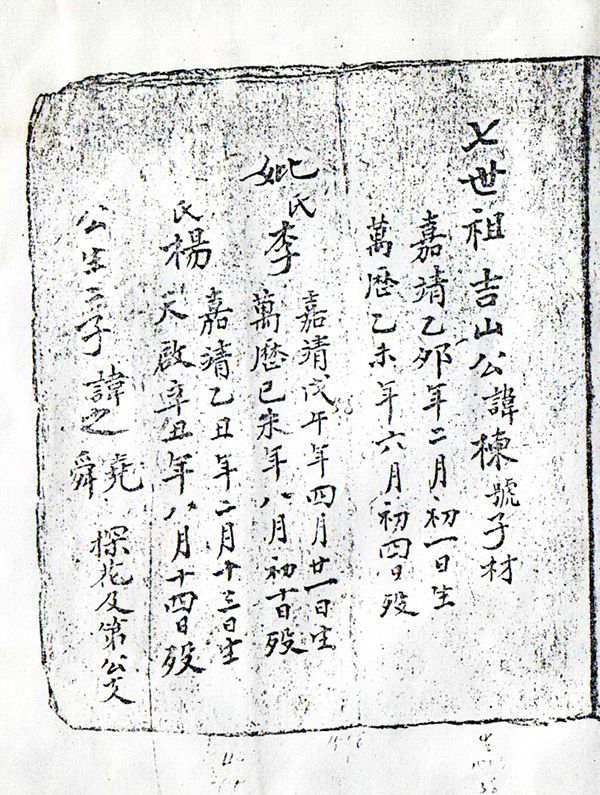 七世祖吉山公諱棟號子材
嘉靖乙卯年二月初一日生
萬歷乙未年六月初四日歿
妣氏李
嘉靖戊午年四月廿一日生
萬歷己未年八月初十日歿
氏楊
嘉靖乙丑年二月十三日生
天啟辛丑年八月十四日歿
公生二子諱之堯
舜
探花及第公文